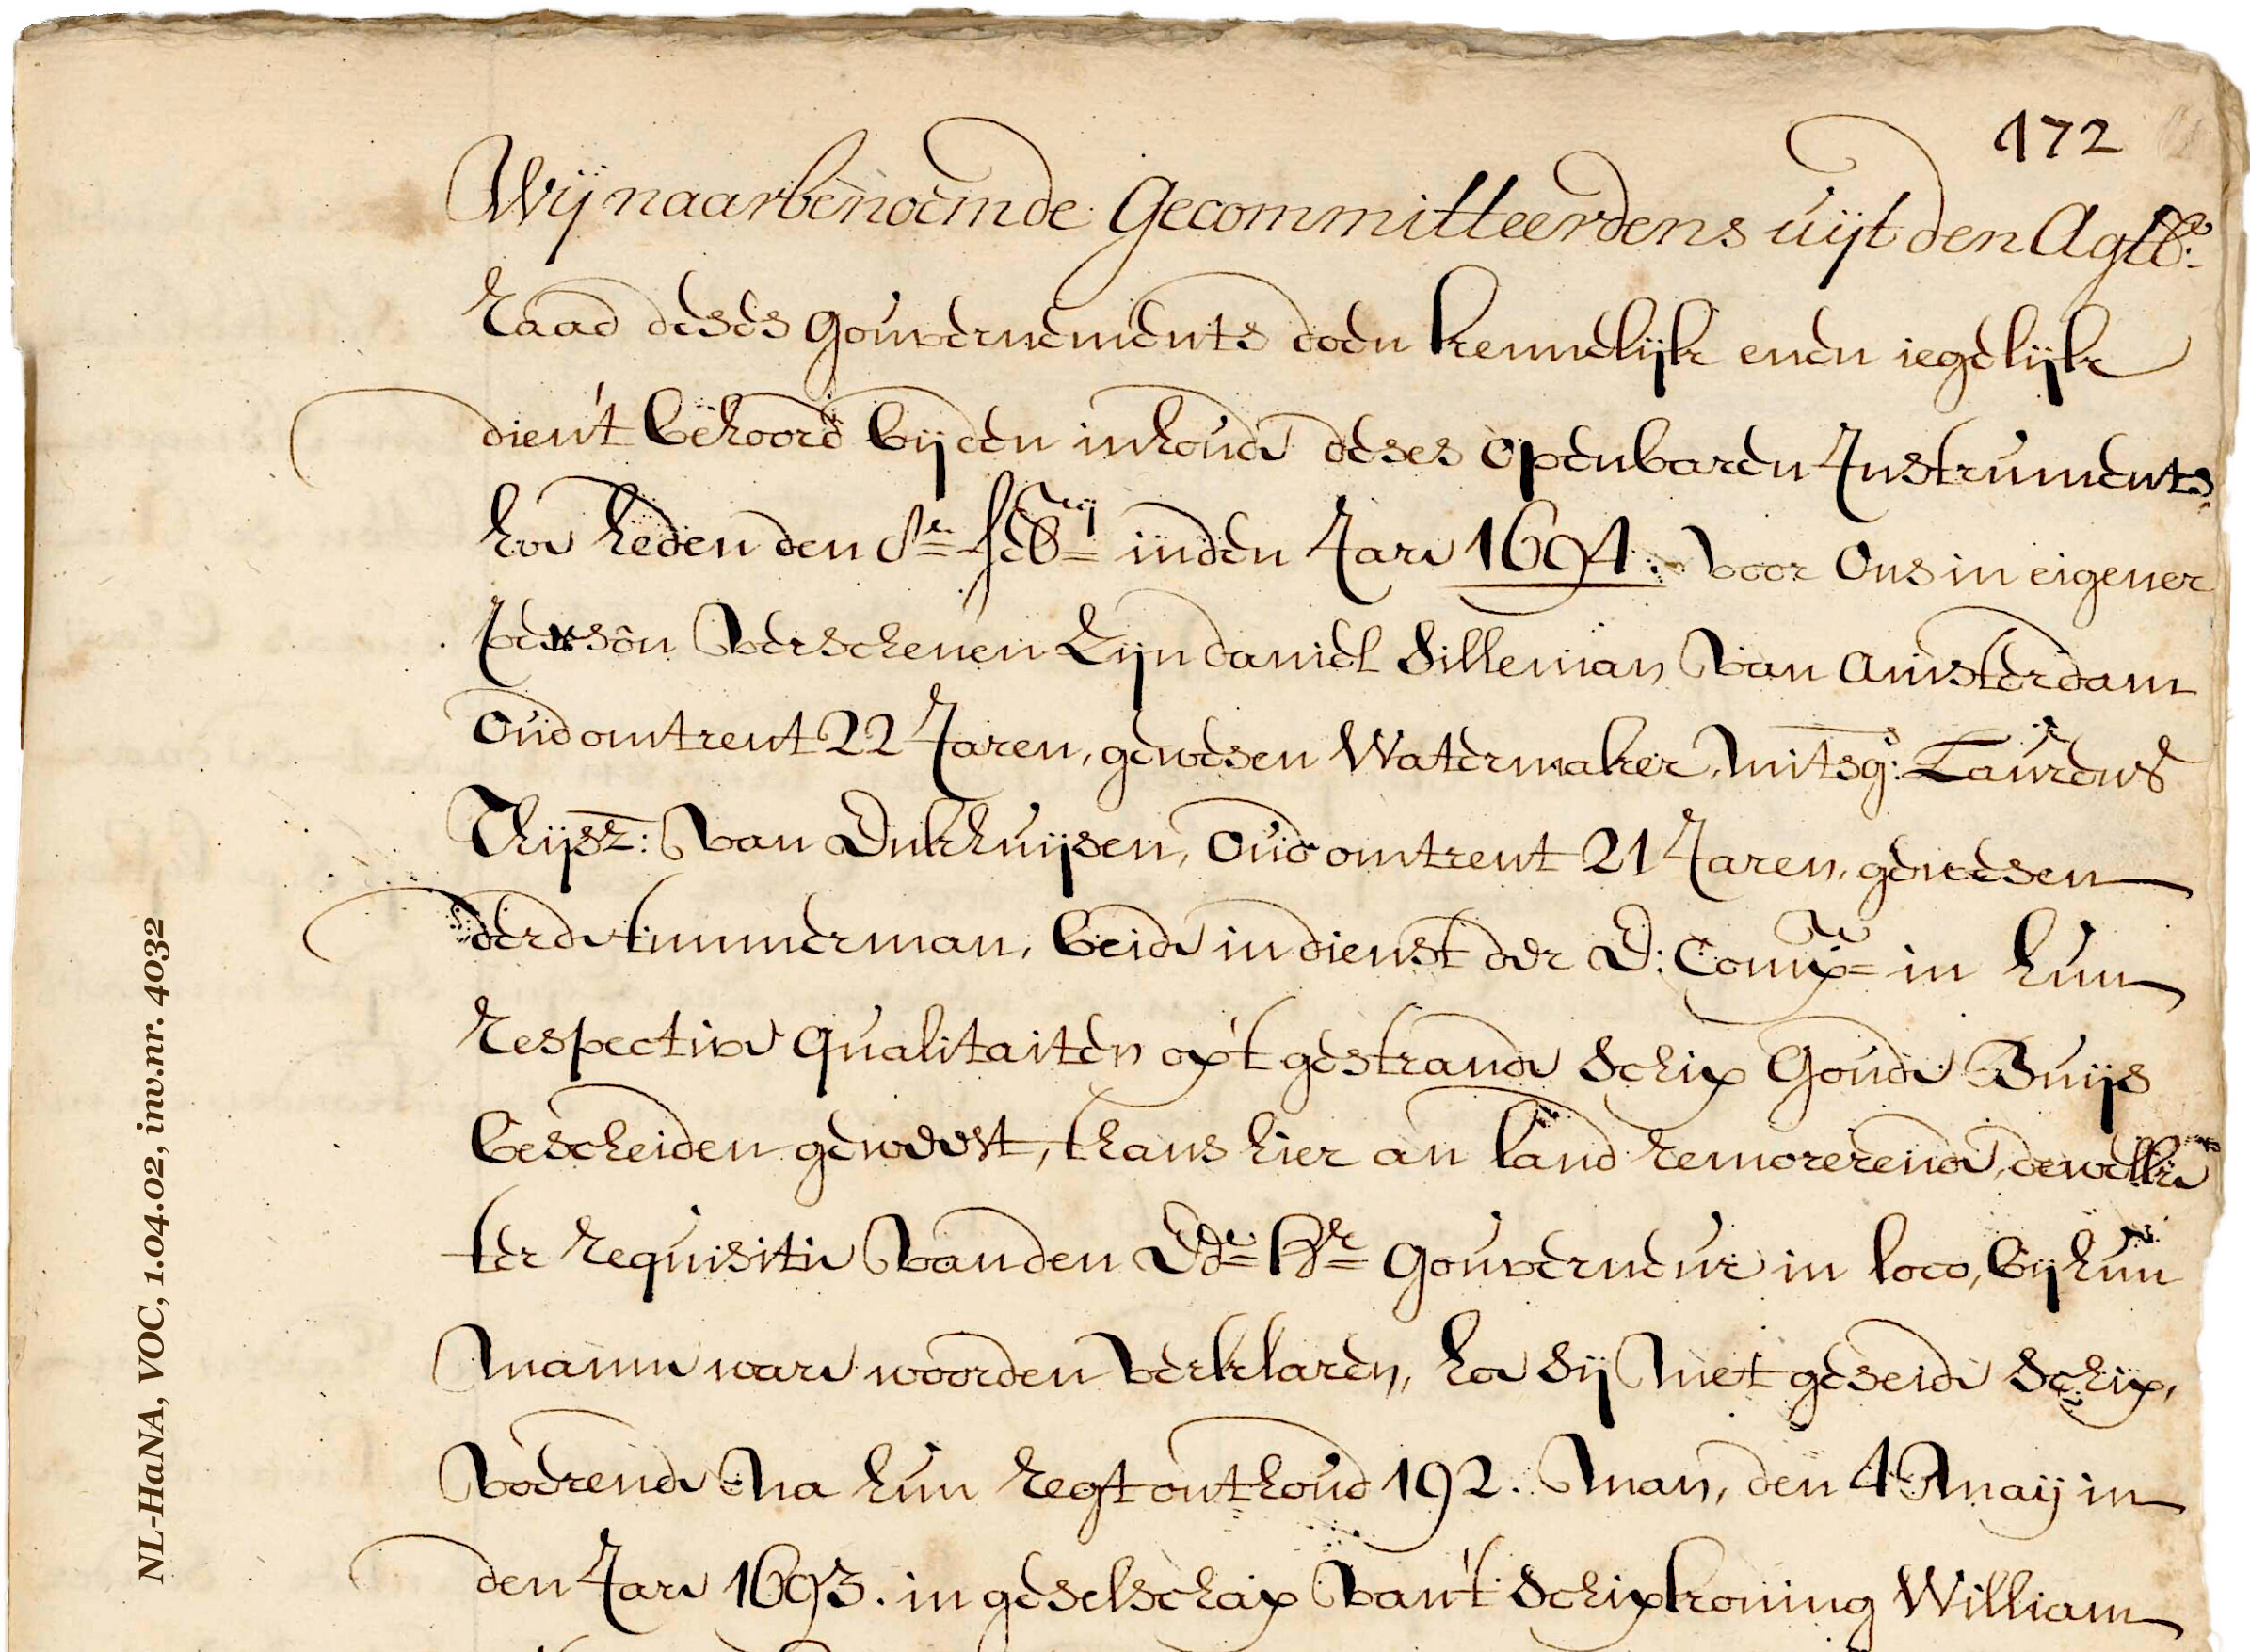 172
Wij naarbenoemde Gecommitteerdens uijt den Agtb:e
Raad deses Gouvernements doen kennelijk enen iegelijk
dien't behoord bij den inhoud deses openbaren Instruments,
hoe heden den 8e feb:rij inden Jare 1694. voor Ons in eigener
persôn verschenen zijn daniel Silleman van Amsterdam
oud omtrent 22 Jaren, gewesen Watermaker, mitsg:s Laurens
Thijsz: van Enkhuijsen, oud omtrent 21 Jaren, gewesen
derde timmerman, beide in dienst der E: Comp:e in hun
respective qualitaiten op't gestrande schip Goude Buijs
bescheiden geweest, thans hier an land remorerende, dewelke
ter requisitie van den Ed:e Hr Gouverneur in loco, bij hun
manne ware woorden verklaren, hoe sij met geseide schip,
voerende na hun regt onthoud 192. man, den 4 maij in
den Jare 1693. in geselschap van't schip koning William
NL-HaNA, VOC, 1.04.02, inv.nr. 4032